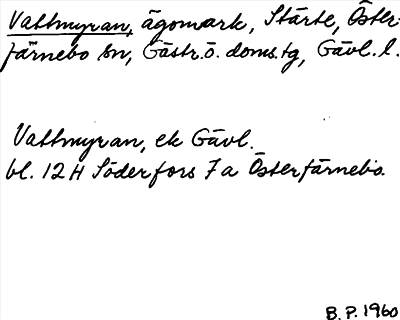 Vallmyran, ägomark, Stärte, Öster-
färnebo sn, Gästr.ö. doms.tg, Gävl. l.
Vallmyran, ek Gävl.
bl. 12 H Söderfors 7a Österfärnebo.
B. P. 1960